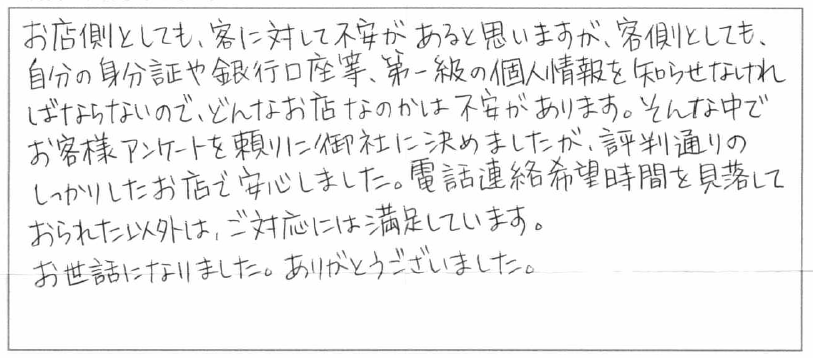 お店側としても、客に対して不安があると思いますが、客側としても、
自分の身分証や銀行口座等、第一級の個人情報を知らせなけれ
ばならないので、どんなお店なのかは不安があります。そんな中で
お客様アンケートを頼りに御社に決めましたが、評判通りの
しっかりしたお店で安心しました。電話連絡希望時間を見落して
おられた以外は、ご対応には満足しています。
お世話になりました。ありがとうございました。